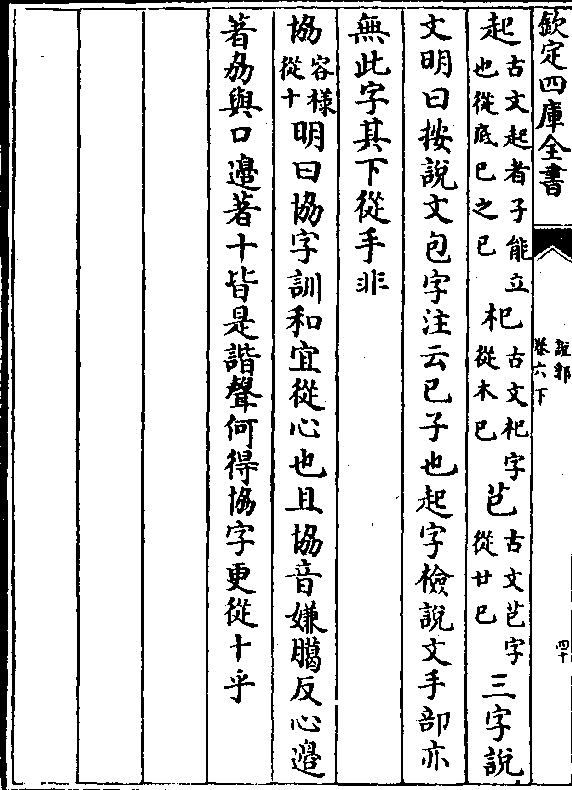 欽定四庫全書
說郛
卷六下
四十
起古文起者子能立也從底巳之巳杞古文杞字從木巳芑古文芑字從廿巳三字說
文明曰按說文包字注云巳子也起字檢說文手部亦
無此字其下從手非
協容樣從十明曰協字訓和宜從心也且協音嫌臈反心邊
著劦與口邊著十皆是諧聲何得協字更從十乎